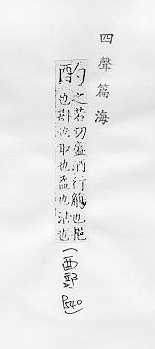 四聲篇海
酌 之若切盛酒行觴也挹
也斟也取也益也沾也
(酉部 P540)